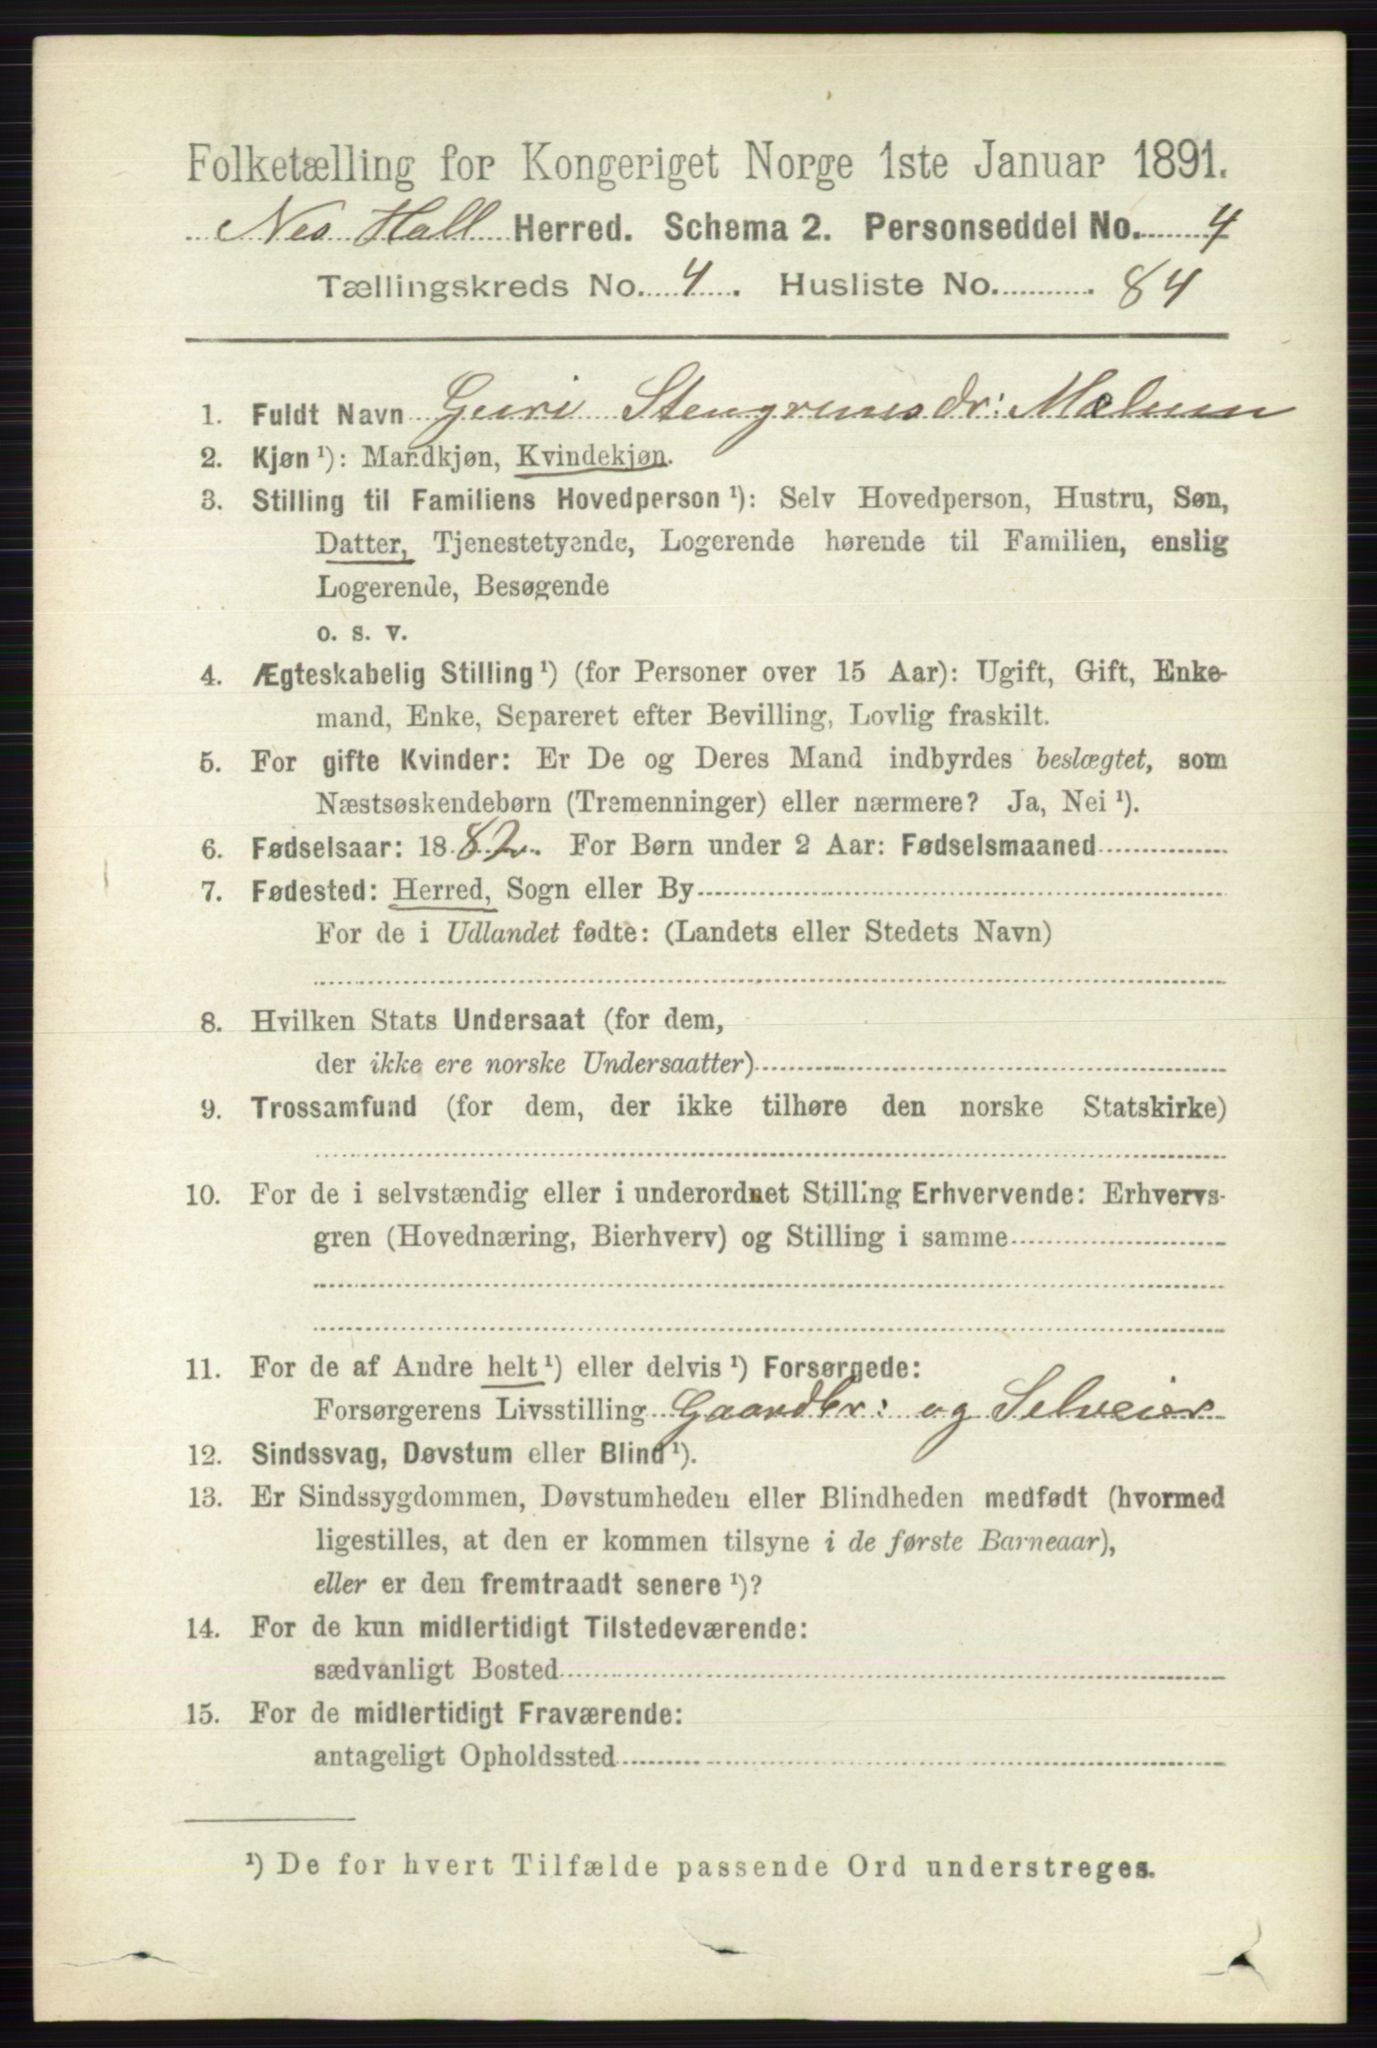 Folketælling for Kongeriget Norge 1ste Januar 1891.
Nes Hall Herred. Schema 2. Personseddel No. 4
Tællingskreds No. 4. Husliste No. 84
1. Fuldt Navn Guri Stengrimsdr: Mælum
2. Kjøn ¹): Mandkjøn, Kvindekjøn.
3. Stilling til Familiens Hovedperson ¹): Selv Hovedperson, Hustru, Søn,
Datter, Tjenestetyende, Logerende hørende til Familien, enslig
Logerende, Besøgende
o. s. v.
4. Ægteskabelig Stilling ¹) (for Personer over 15 Aar): Ugift, Gift, Enke-
mand, Enke, Separeret efter Bevilling, Lovlig fraskilt.
5. For gifte Kvinder: Er De og Deres Mand indbyrdes beslægtet, som
Næstsøskendebørn (Tremenninger) eller nærmere? Ja, Nei ¹).
6. Fødselsaar: 1882. For Børn under 2 Aar: Fødselsmaaned
7. Fødested: Herred, Sogn eller By
For de i Udlandet fødte: (Landets eller Stedets Navn)
8. Hvilken Stats Undersaat (for dem,
der ikke ere norske Undersaatter)
9. Trossamfund (for dem, der ikke tilhøre den norske Statskirke)
10. For de i selvstændig eller i underordnet Stilling Erhvervende: Erhvervs-
gren (Hovednæring, Bierhverv) og Stilling i samme
11. For de af Andre helt ¹) eller delvis ¹) Forsørgede:
Forsørgerens Livsstilling Gaardbr: og Selveier
12. Sindssvag, Døvstum eller Blind ¹).
13. Er Sindssygdommen, Døvstumheden eller Blindheden medfødt (hvormed
ligestilles, at den er kommen tilsyne i de første Barneaar),
eller er den fremtraadt senere ¹)?
14. For de kun midlertidigt Tilstedeværende:
sædvanligt Bosted
15. For de midlertidigt Fraværende:
antageligt Opholdssted
¹) De for hvert Tilfælde passende Ord understreges.